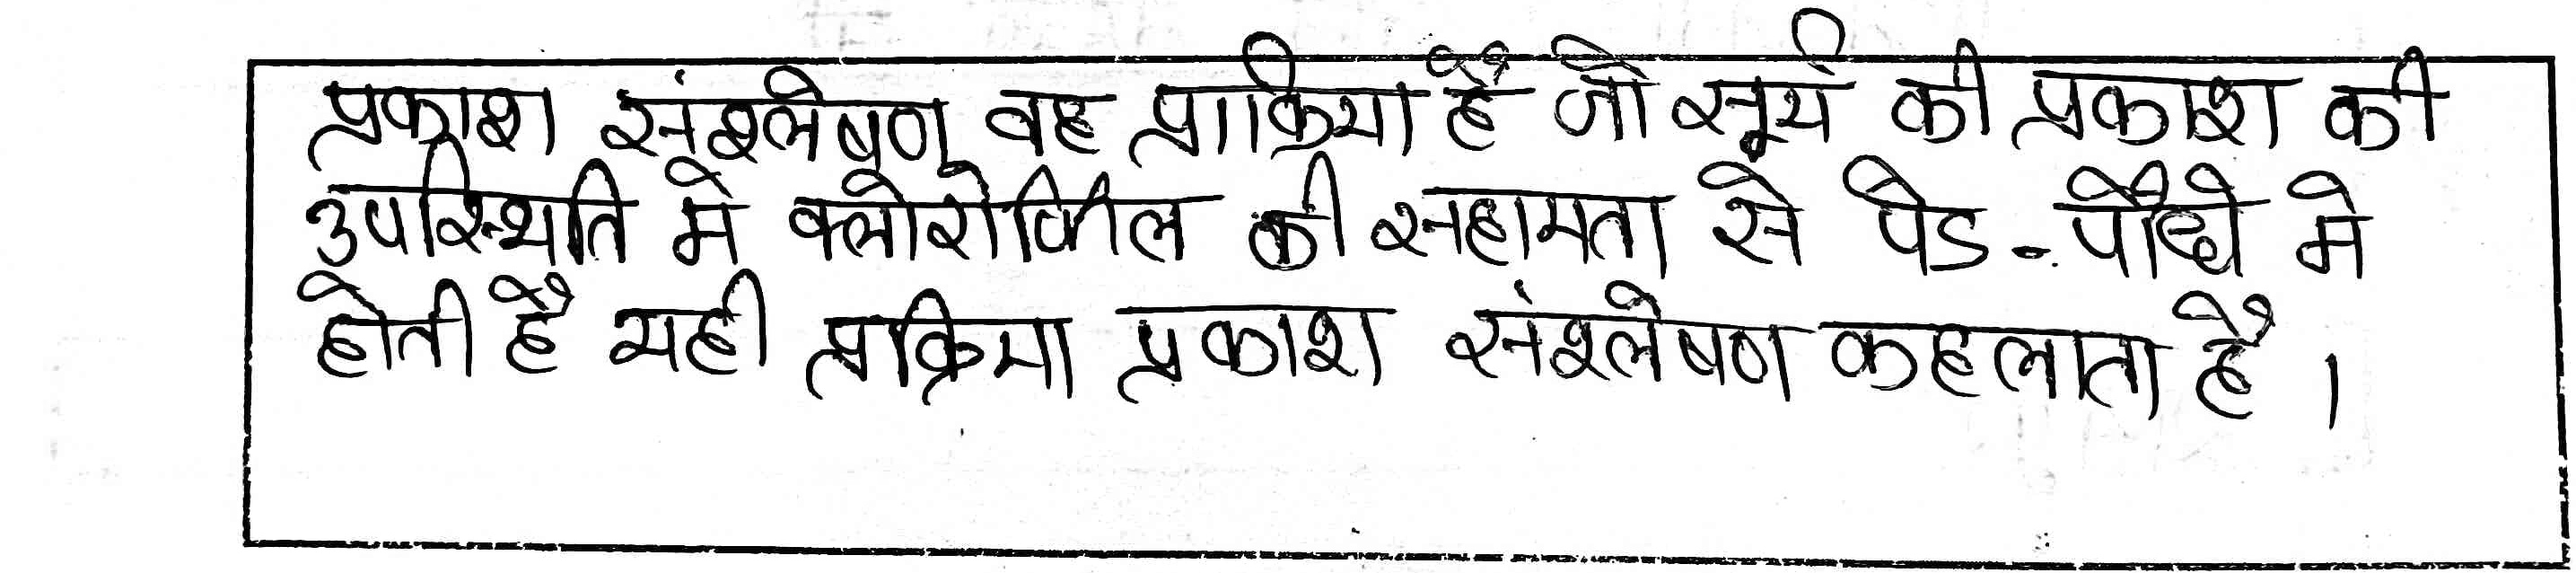 प्रकाश संश्लेषण वह प्राक्रिया है जो सूर्य की प्रकाश की
उपस्थिति मे क्लोरोफिल की सहायता से पेड-पौधे मे
होती है यही प्रक्रिया प्रकाश संश्लेषण कहलाता है ।